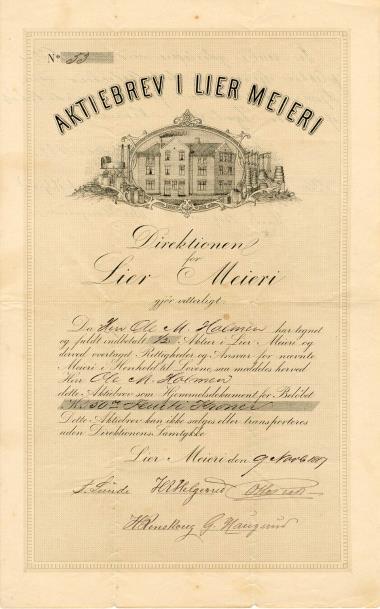 No 53
AKTIEBREV I LIER MEIERI
Direktionen
for
Lier Meieri
gjör vitterligt:
Da Herr Ole M. Holmen har tegnet
og fuldt indbetalt 1/2 Aktier i Lier Meieri og
derved overtaget Rettigheder og Ansvar for nævnte
Meieri i Henhold til Lovene, saa meddeles herved
Herr Ole M. Holmen
dette Aktiebrev som Hjemmelsdokument for Belöbet
Kr. 50
Dette Aktiebrev kan ikke sælges eller transporteres
uden Direktionens Samtykke
Lier Meieri den 9 Novb 1887